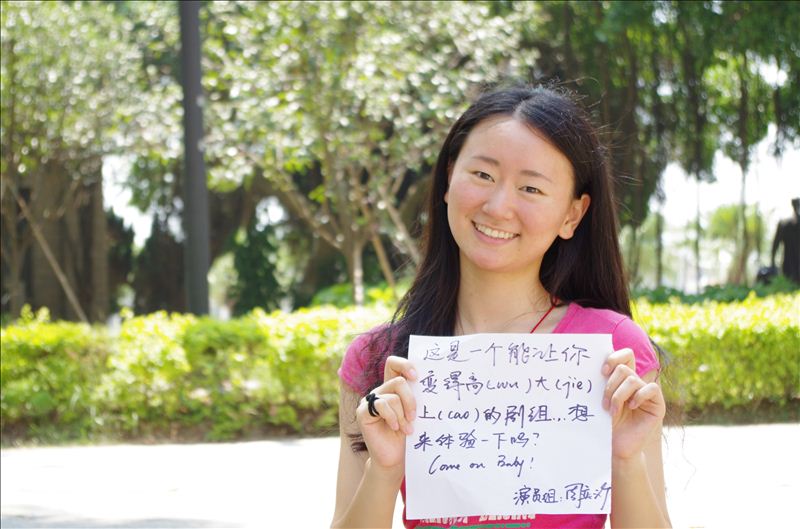 这是一个能让你
变得高(wu)大(jie)
上(cao)的剧组...想
来体验一下吗?
Come on Baby!
演员组:周